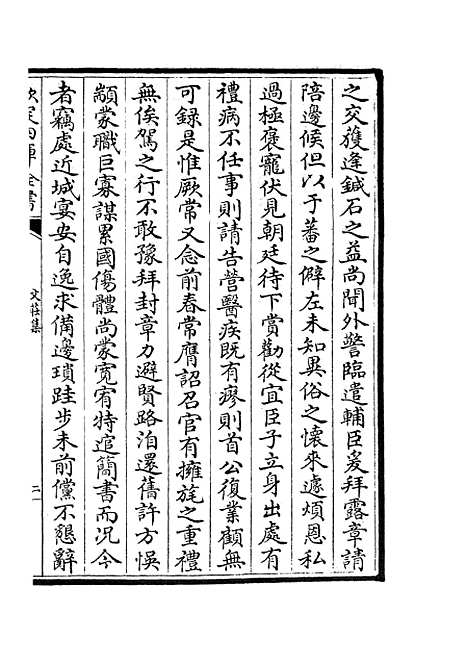 之交獲逢鍼石之益尚聞外警臨遣輔臣爰拜露章請
陪邊候但以于蕃之僻左未知異俗之懷來遽煩恩私
過極褒寵伏見朝廷待下賞勸從宜臣子立身出處有
禮病不任事則請告營醫疾既有瘳則首公復業顧無
可録是惟厥常又念前春常膺詔召官有擁旄之重禮
無俟駕之行不敢豫拜封章力避賢路洎還舊許方悞
顓蒙職巨寡謀累國傷體尚蒙寛宥特逭簡書而况今
者竊處近城宴安自逸求備邊瑣跬步未前儻不懇辭
欽定四庫全書
文莊集
二